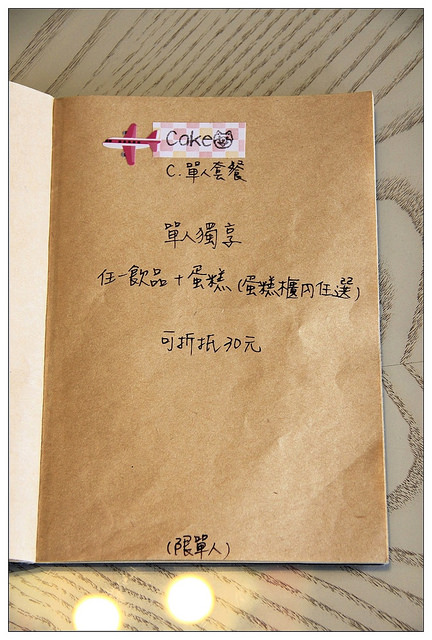 Cake
C.單人套餐
單人獨享
任一飲品+蛋糕(蛋糕櫃內任選)
可折抵30元
(限單人)